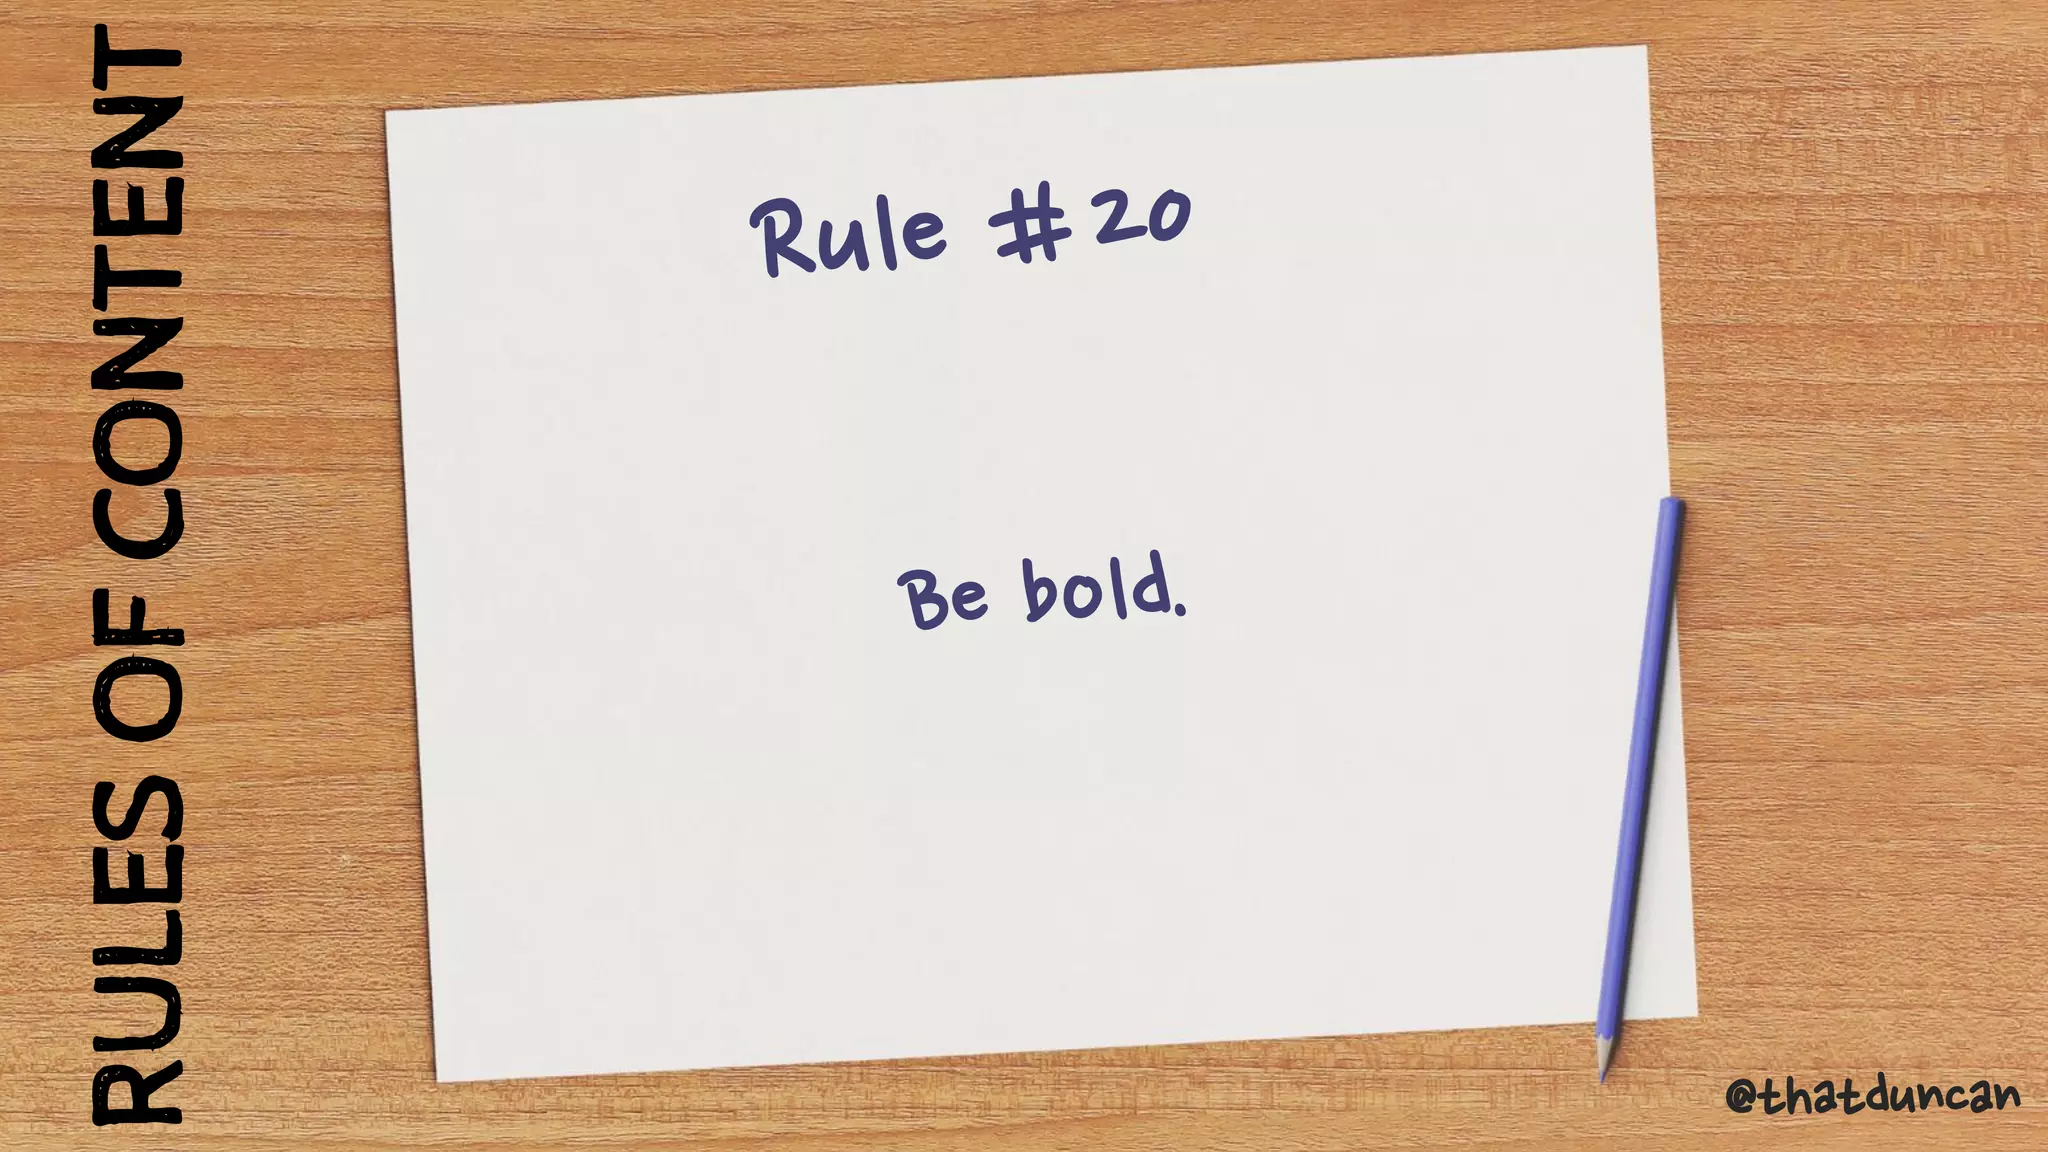 RULES OF CONTENT
Rule #20
Be bold.
@thatduncan